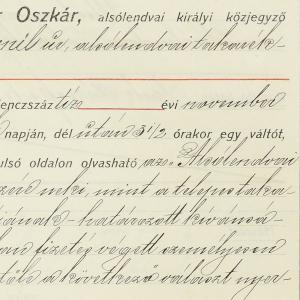 r Oszkár, alsólendvai királyi közjegyző
úr, alsólendvai takarék-
enczszáz tíz évi november
napján, dél után 3 1/2 órakor egy váltót,
ulsó oldalon olvasható, az „Alsólendvai
neki, mint a telepes taka
jának - határozott kívánsá-
fizetés végett személyesen
tőle a következő választ nyer-